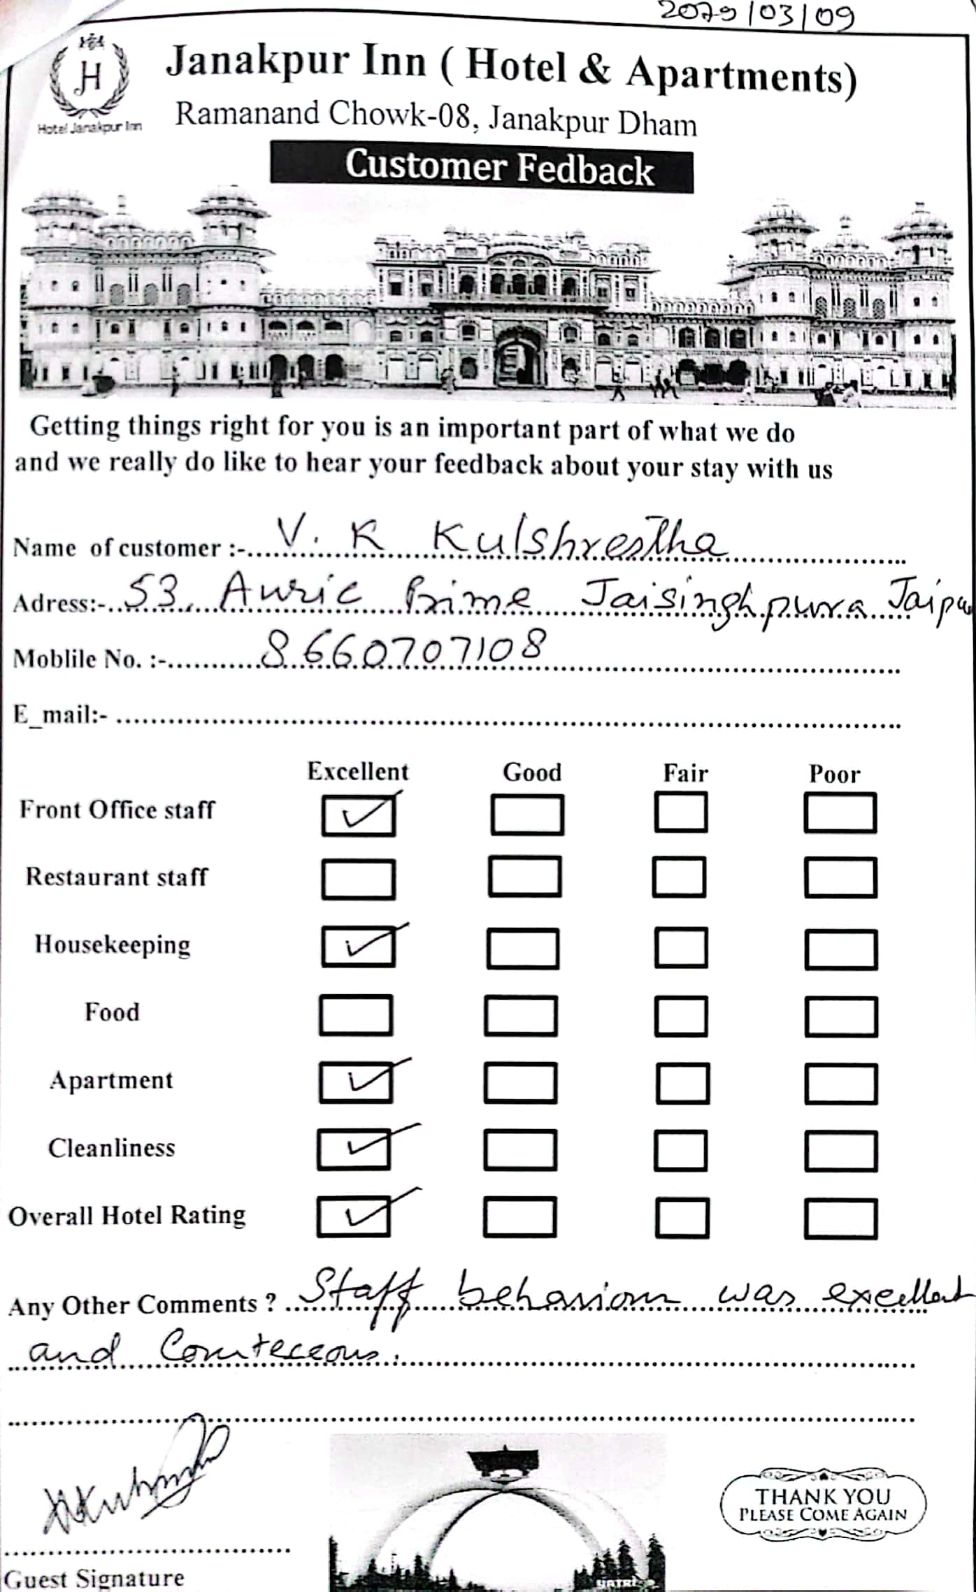 2079/03/09
H
Hotel Janakpur Inn
Janakpur Inn ( Hotel & Apartments)
Ramanand Chowk-08, Janakpur Dham
Customer Fedback
Getting things right for you is an important part of what we do
and we really do like to hear your feedback about your stay with us
Name of customer :- V. K Kulshrestha
Adress:- 53, Auric Prime Jaisinghpura Jaipur
Moblile No. :- 8660707108
E_mail:-
Excellent Good Fair Poor
Front Office staff
Restaurant staff
Housekeeping
Food
Apartment
Cleanliness
Overall Hotel Rating
Any Other Comments ? Staff behaviour was excellent
and Courteceous.
THANK YOU
PLEASE COME AGAIN
Guest Signature